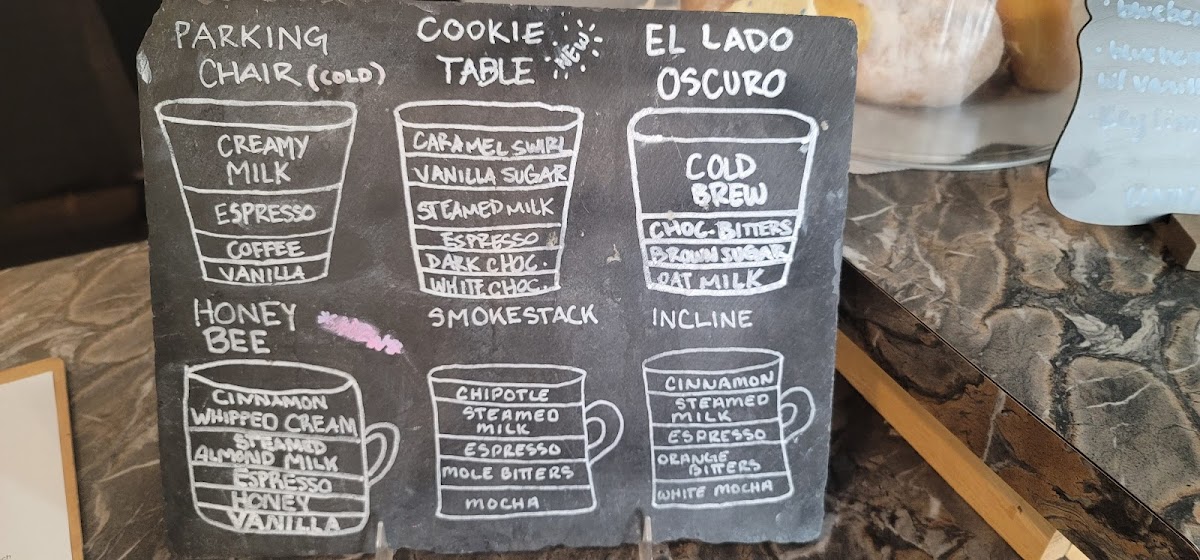 PARKING
CHAIR (COLD)
CREAMY
MILK
ESPRESSO
COFFEE
VANILLA
COOKIE
TABLE NEW
CARAMEL SWIRL
VANILLA SUGAR
STEAMED MILK
ESPRESSO
DARK CHOC.
WHITE CHOC.
EL LADO
OSCURO
COLD
BREW
CHOC. BITTERS
BROWN SUGAR
OAT MILK
HONEY
BEE
CINNAMON
WHIPPED CREAM
STEAMED
ALMOND MILK
ESPRESSO
HONEY
VANILLA
SMOKESTACK
CHIPOTLE
STEAMED
MILK
ESPRESSO
MOLE BITTERS
MOCHA
INCLINE
CINNAMON
STEAMED
MILK
ESPRESSO
ORANGE
BITTERS
WHITE MOCHA